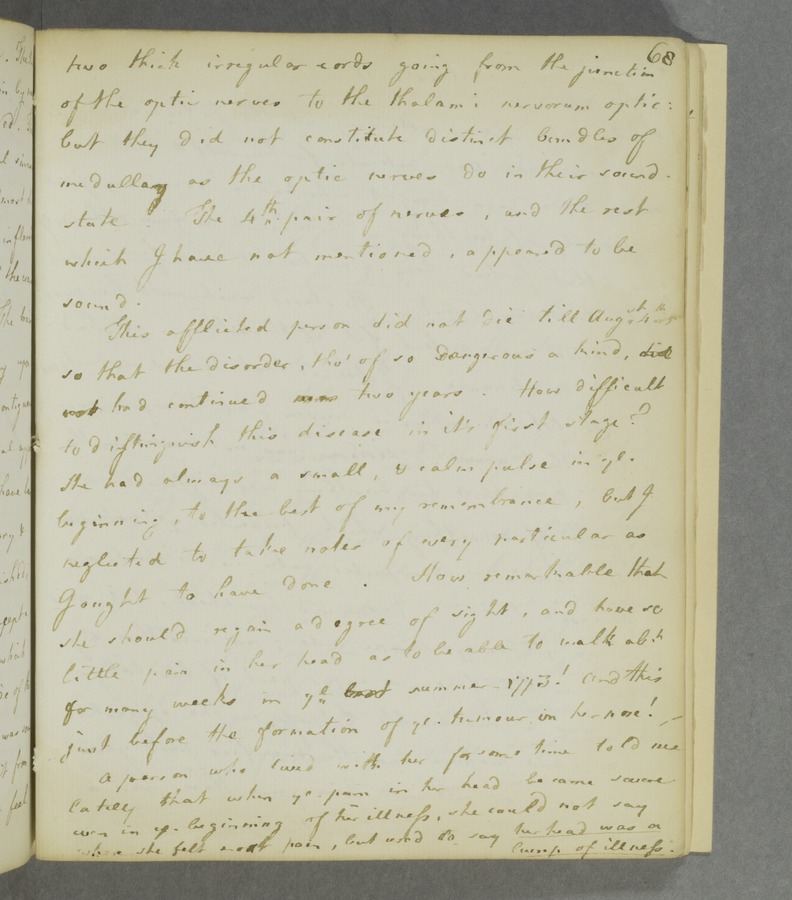 68
two thick irregular cords going from the junction
of the optic nerves to the thalami nervorum optic:
but they did not constitute distinct bundles of
medullary as the optic nerves do in their sound
state. The 4th pair of nerves, and the rest
which I have not mentioned, appeared to be
sound.
This afflicted person did not die till Augst
so that the disorder, tho' of so dangerous a kind, did
not had continued two years. How difficult
to distinguish this disease in it's first stage?
She had always a small, & calm pulse in ye.
beginning, to the best of my remembrance, but I
neglected to take notes of every particular as
I ought to have done. How remarkable that
she should regain a degree of sight, and have so
little pain in her head as to be able to walk abt
for many weeks in ye summer 1773! and this
just before the formation of ye. tumour in her nose!
A person who lived with her for some time told me
lately that when ye. pain in her head became severe
even in ye. beginning of her illness, she could not say
where she felt most pain, but used to say her head was a
lump of illness.